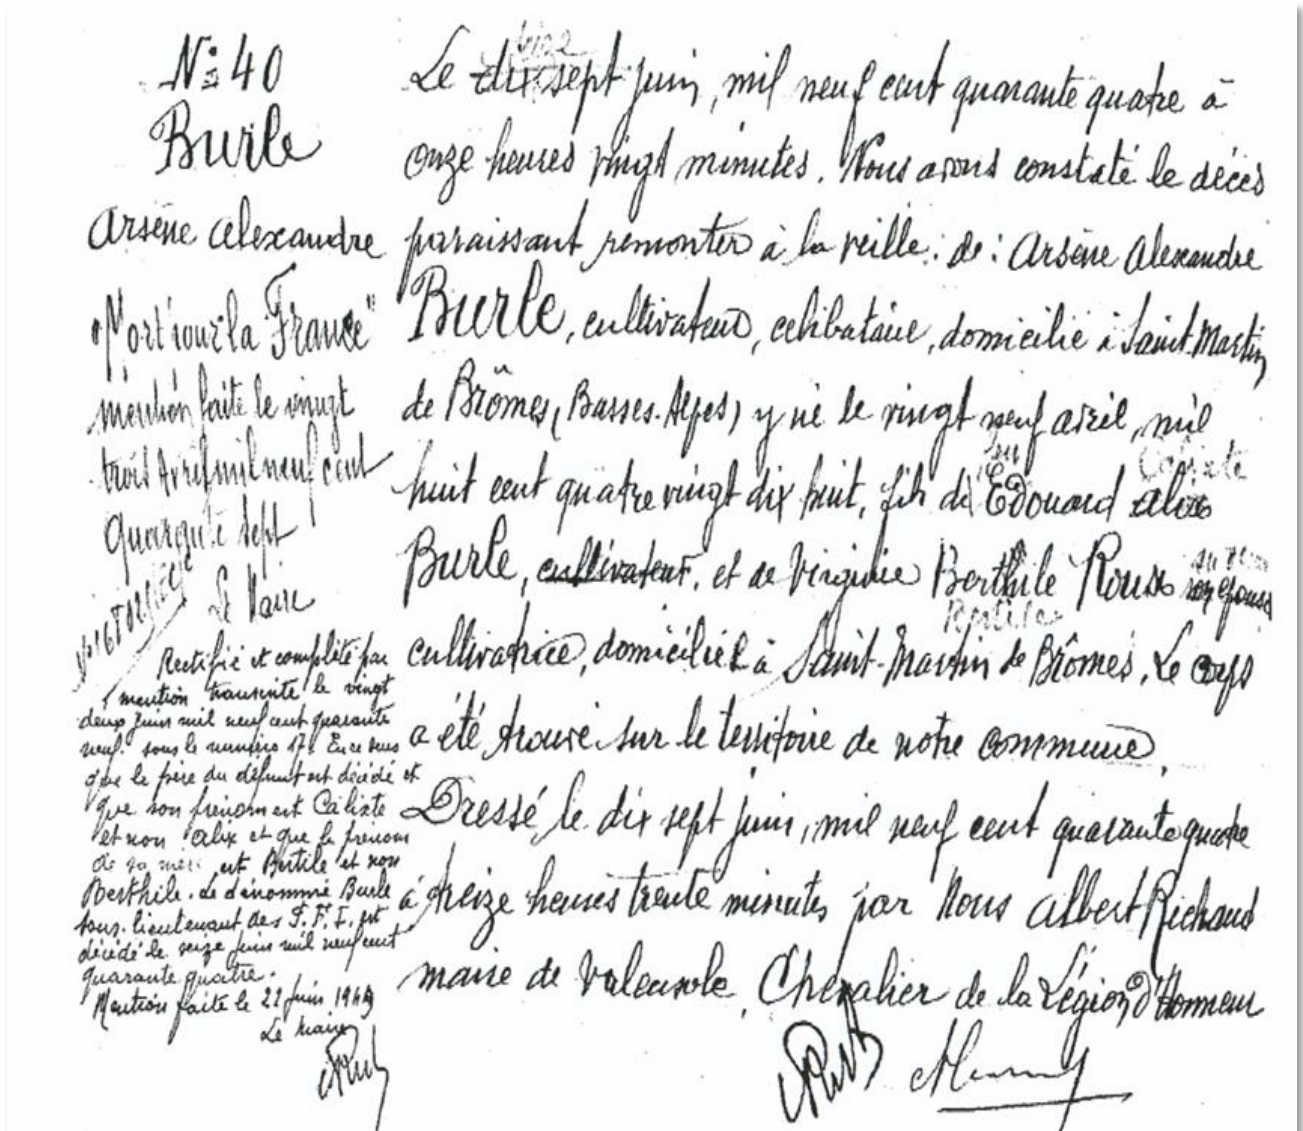 N° 40
Burle
Arsène Alexandre
"Mort pour la France"
mention faite le vingt
trois Avril mil neuf cent
quarante sept
Le Maire
Rectifié et complété par
mention transcrite le vingt
deux juin mil neuf cent quarante
neuf sous le numéro 17. En ce sens
que le père du défunt est décédé et
que son prénom est Calixte
et non Alix et que le prénom
de sa mère est Bertile et non
Berthile. Le dénommé Burle
sous-lieutenant des F.F.I. est
décédé le seize juin mil neuf cent
quarante quatre.
Mention faite le 22 juin 1949
Le Maire
Le dix sept juin, mil neuf cent quarante quatre à
onze heures vingt minutes. Nous avons constaté le décès
paraissant remonter à la veille. de : Arsène Alexandre
Burle, cultivateur, celibataire, domicilié à Saint-Martin
de Brômes, (Basses-Alpes) y né le vingt neuf avril, mil
feu Calixte
huit cent quatre vingt dix huit, fils de Edouard Alix
Burle, cultivateur, et de Virginie Berthile Roux son épouse
Bertile
cultivatrice, domiciliée à Saint-Martin de Brômes. Le corps
a été trouvé sur le territoire de notre commune.
Dressé le dix sept juin, mil neuf cent quarante quatre
à treize heures trente minutes par Nous Albert Richaud
maire de Valensole, Chevalier de la Légion d'Honneur